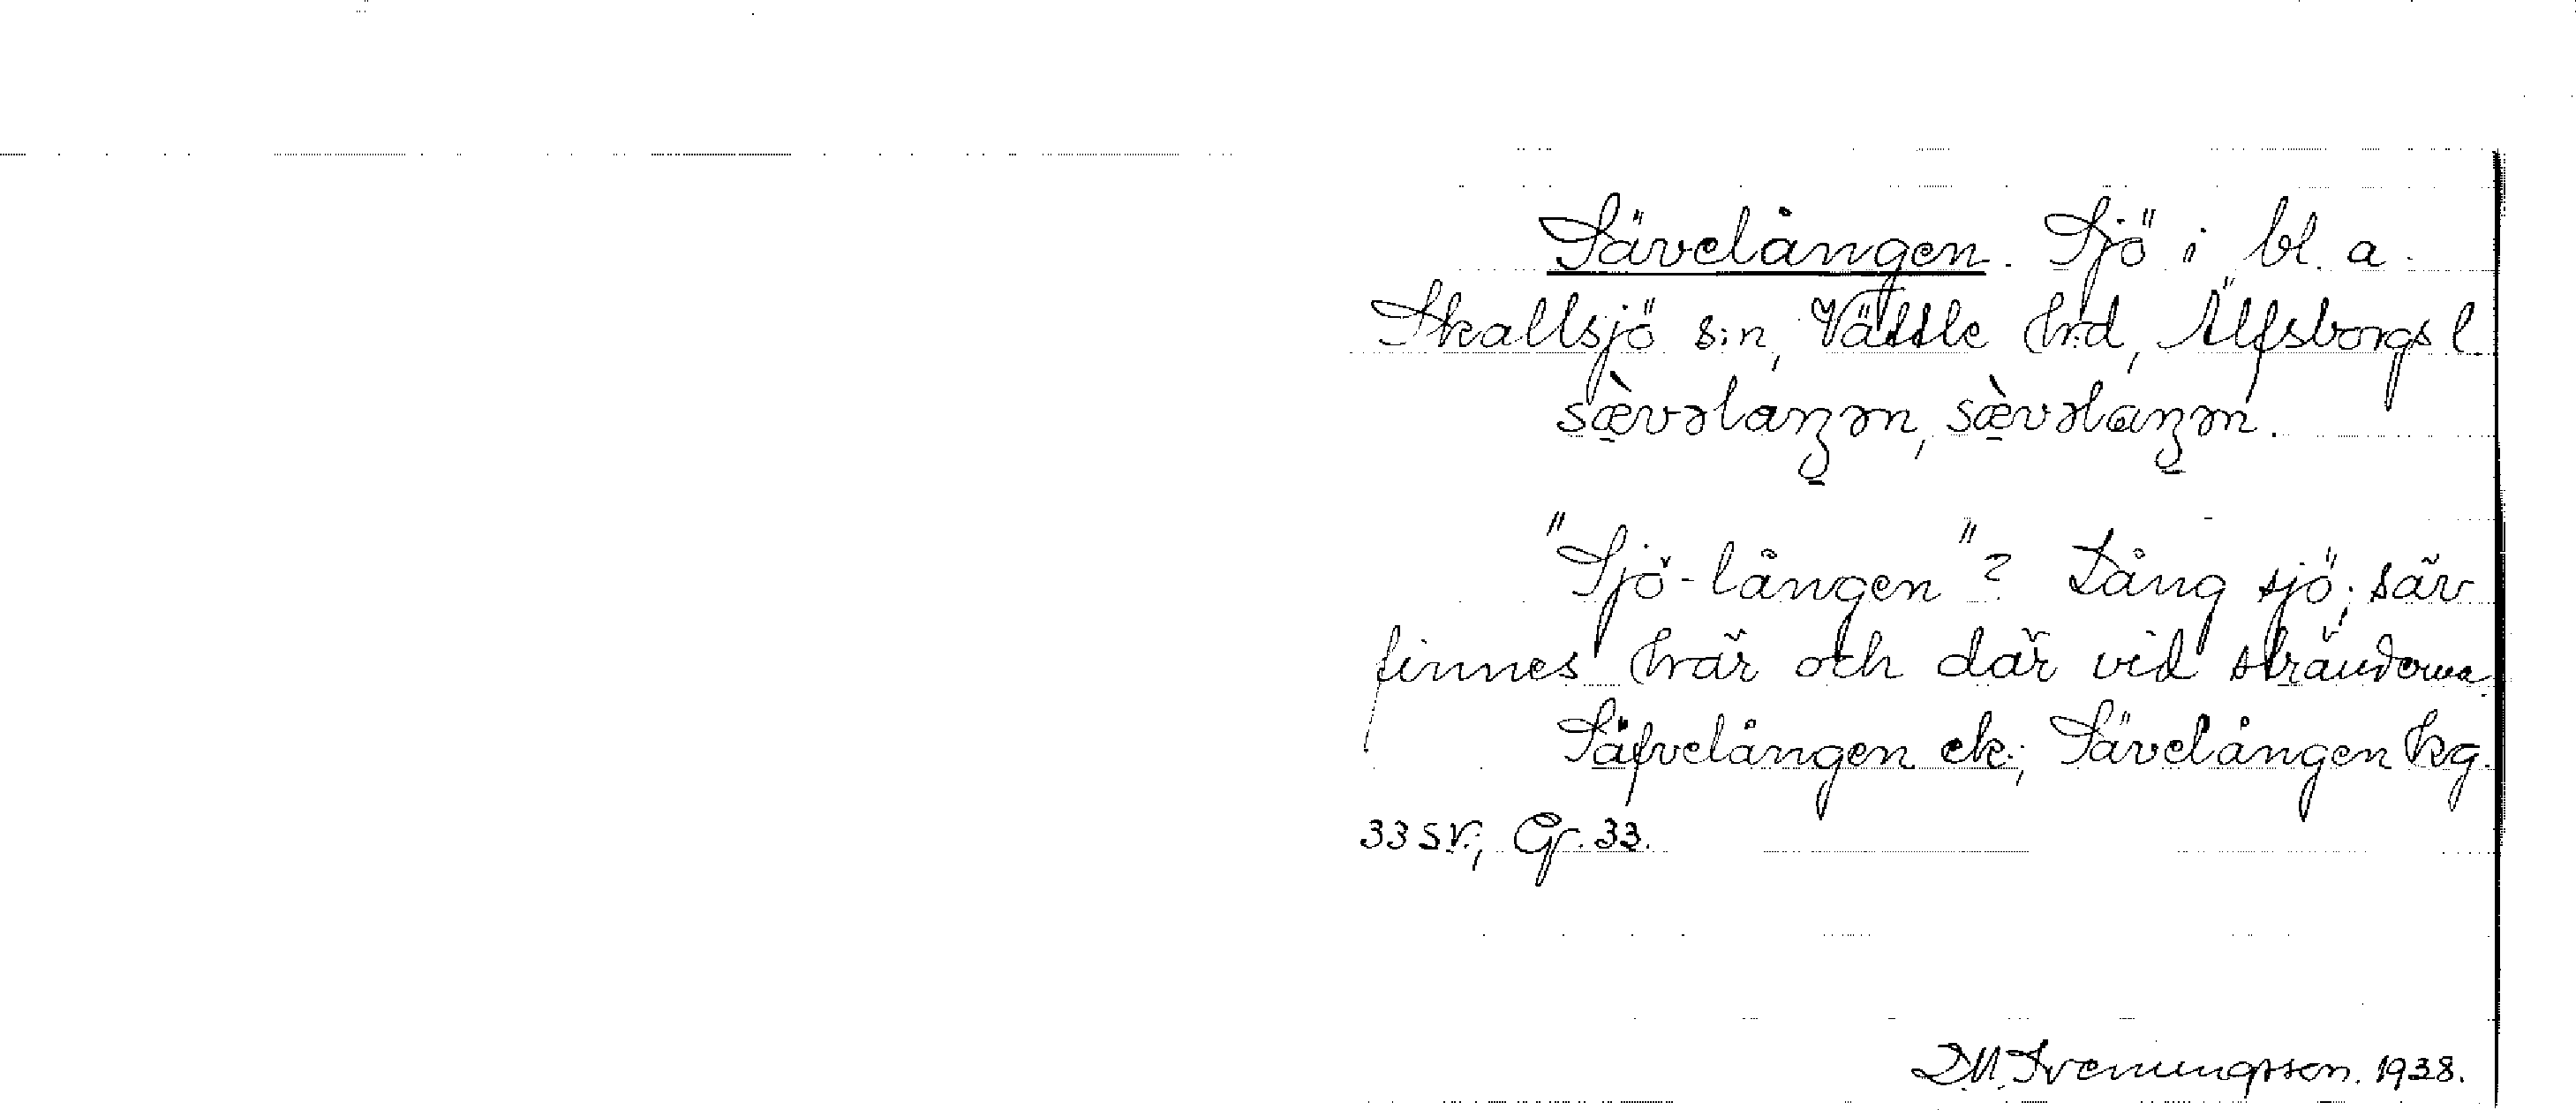 Sävelången. Sjö i bl. a.
Skallsjö s:n, Vättle hrd, Älfsborgs l.
sæ̀vəlaŋən, sæ̀vəlaŋən.
"Sjö-lången"? Lång sjö; säv
finnes här och där vid stränderna.
Säfvelången ek.; Sävelången hg.
33 SV.; Gr. 33.
D.M. Svenungsson. 1938.